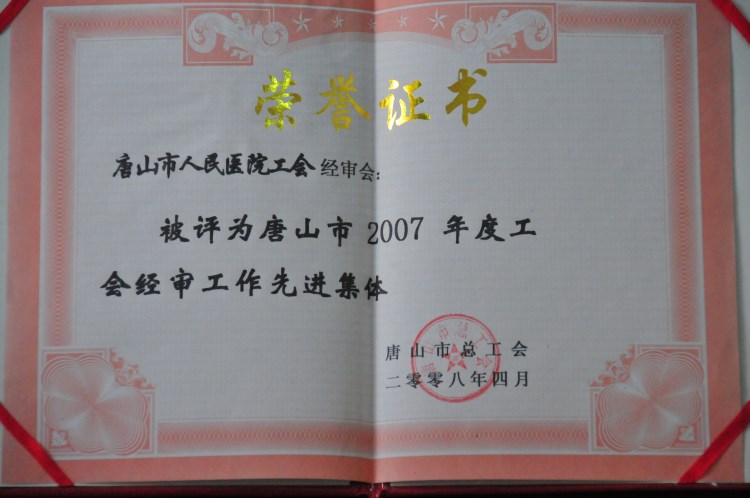 荣誉证书
唐山市人民医院工会经审会：
被评为唐山市2007年度工
会经审工作先进集体
唐山市总工会
唐山市总工会
二零零八年四月